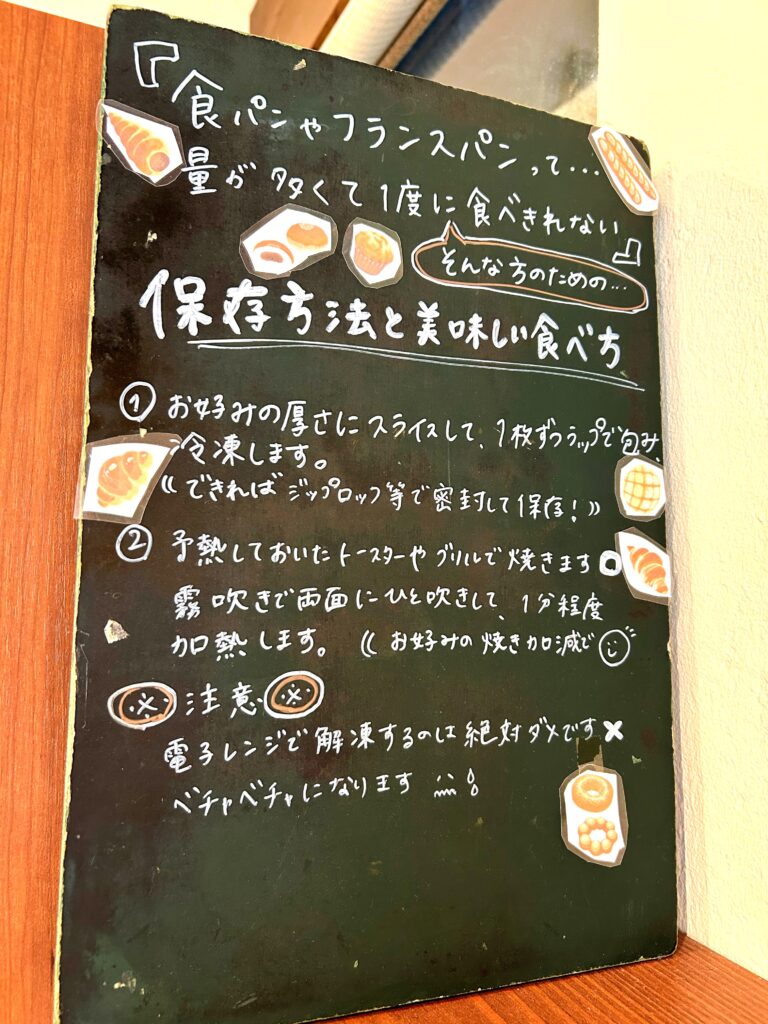 『食パンやフランスパンって…
量が多くて1度に食べきれない』
そんな方のための…
保存方法と美味しい食べ方
① お好みの厚さにスライスして、1枚ずつラップで包み、
冷凍します。
《できればジップロック等で密封して保存!》
② 予熱しておいたトースターやグリルで焼きます○
霧吹きで両面にひと吹きして、1分程度
加熱します。《お好みの焼き加減で
※注意※
電子レンジで解凍するのは絶対ダメです×
ベチャベチャになります